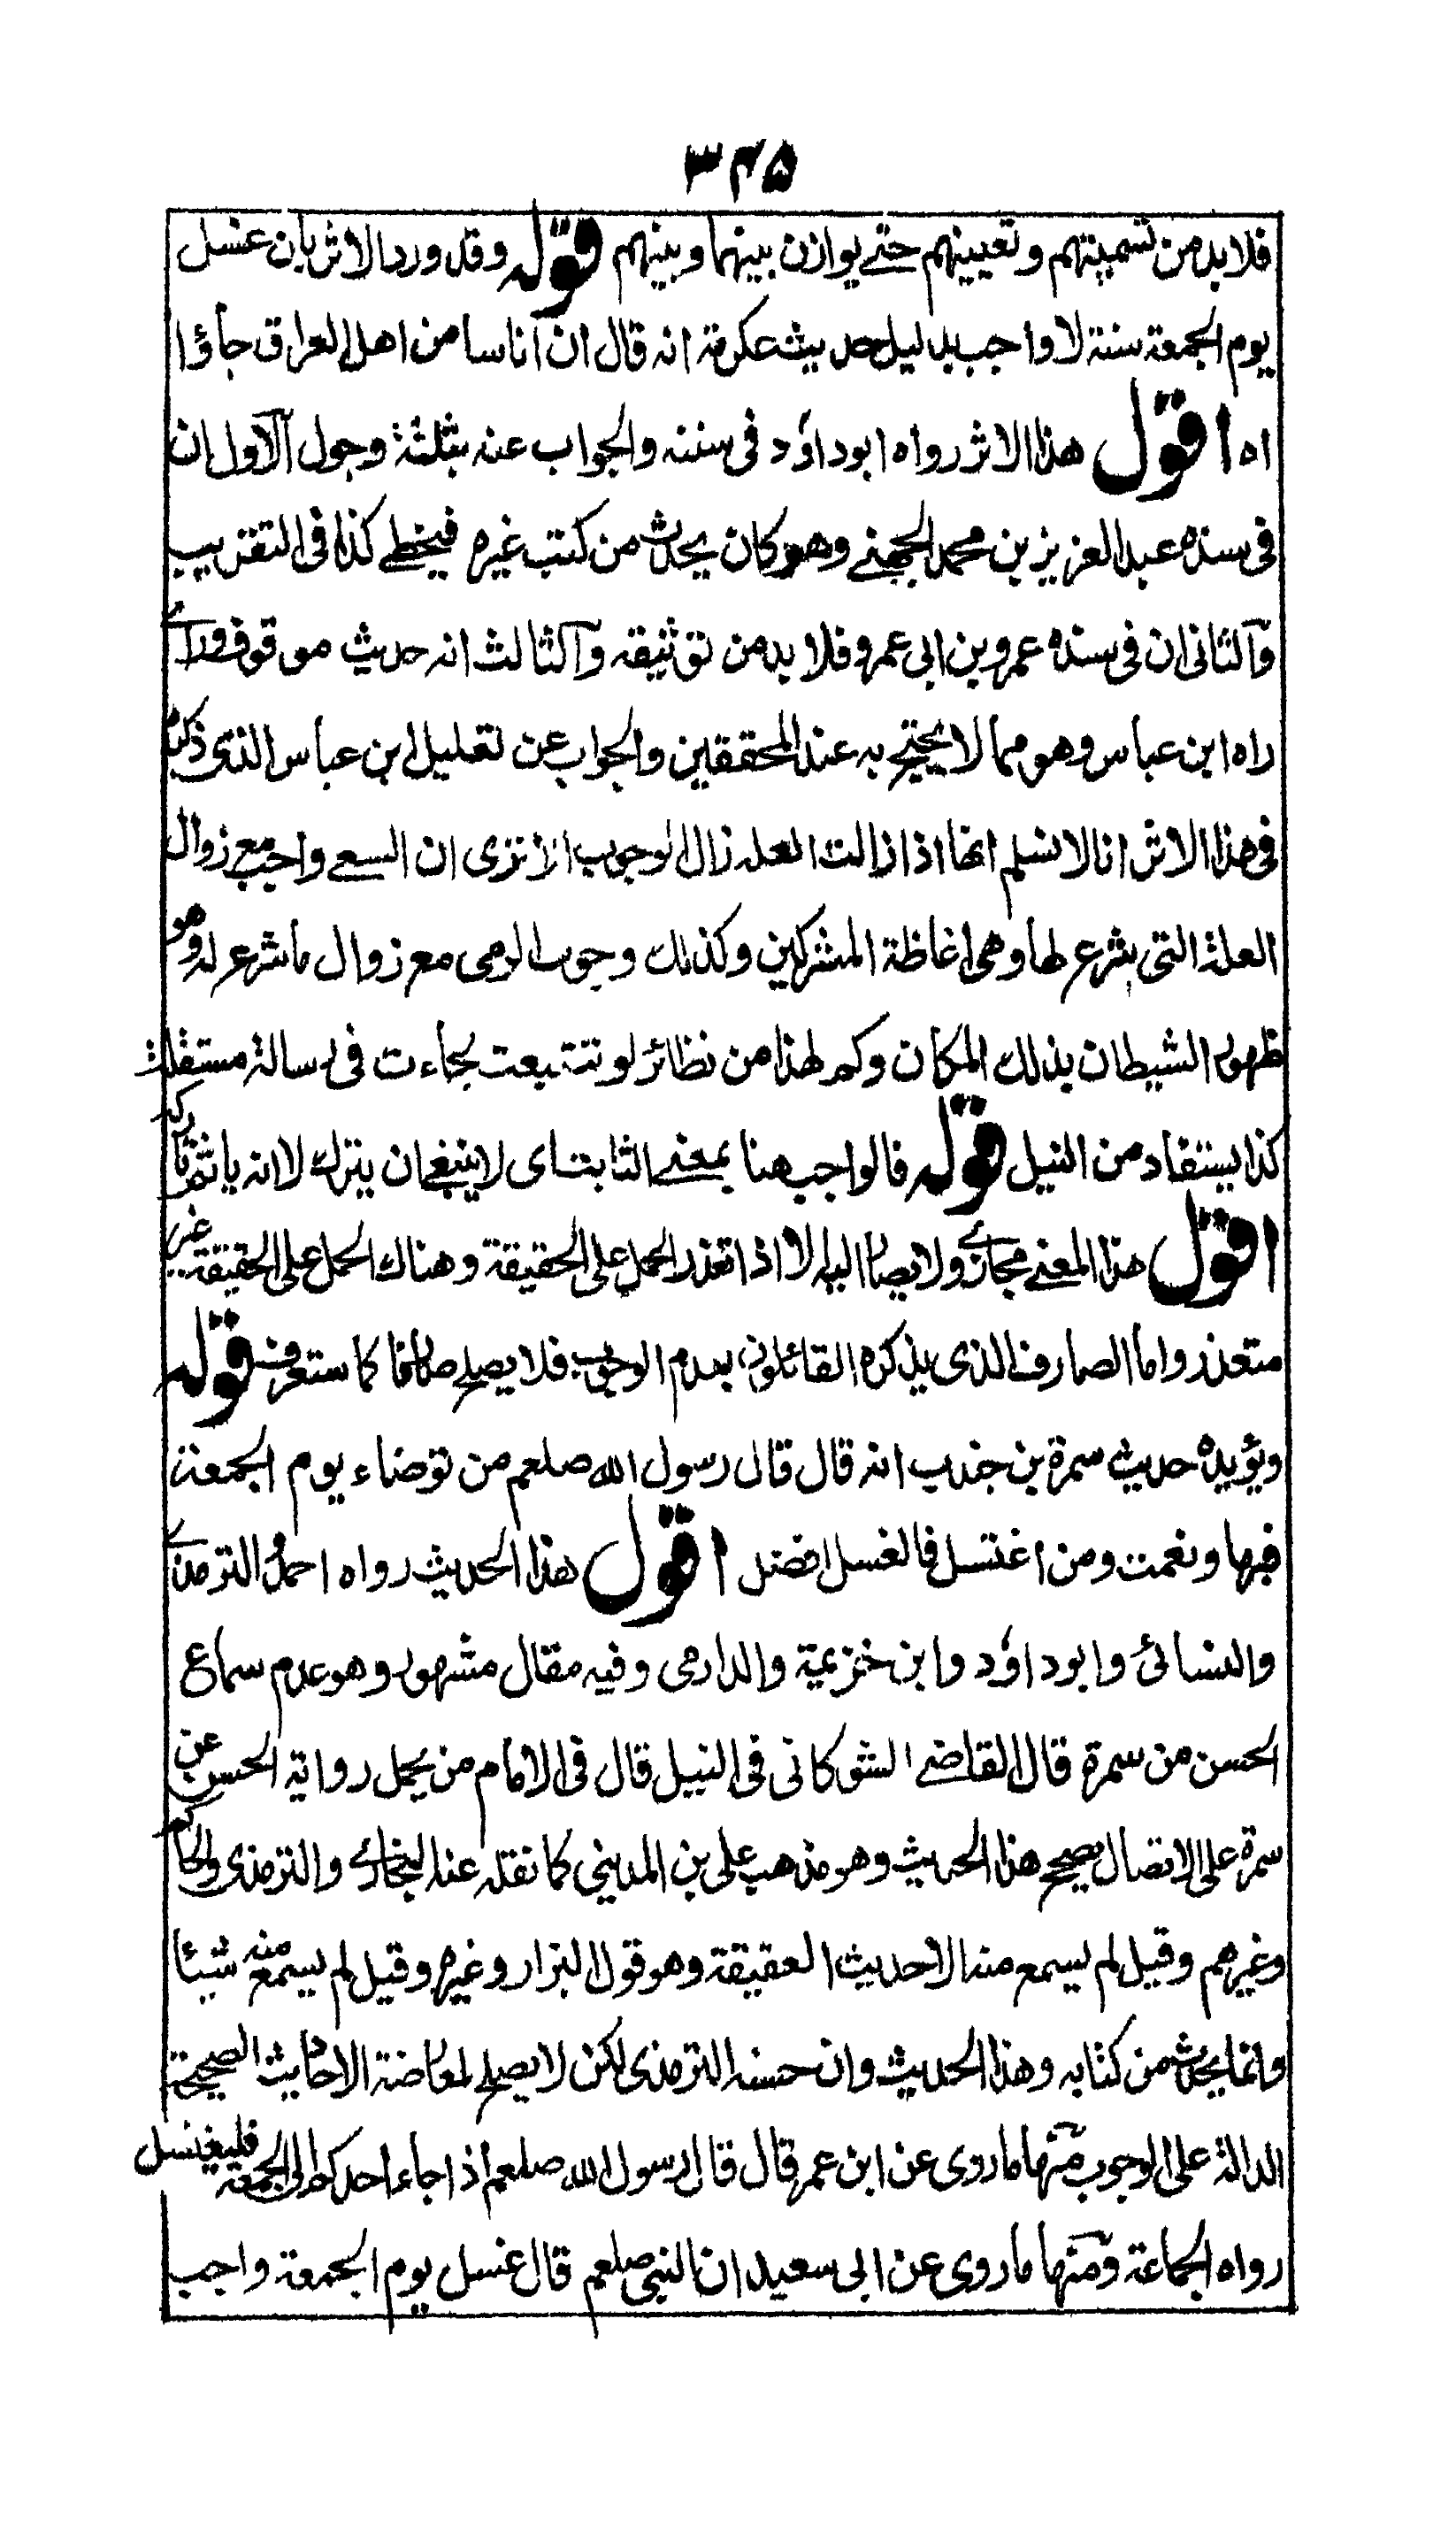 ٣٤٥
فلابد من تسميتهم وتعيينهم حتے يوازن بينهما وبينهم قوله وقد ورد الاثر بان غسل
يوم الجمعة سنة لا واجب بدليل حديث عكرمة انه قال ان اناسا من اهل العراق جاؤا
اه اقول هذا الاثر رواه ابوداؤد فى سننه والجواب عنه بثلثة وجوه الاول ان
فى سنده عبد العزيز بن محمد الجهنے وهو كان يحدث من كتب غيره فيخطے كذا فى التقريب
والثانى ان فى سنده عمرو بن ابى عمرو فلا بد من توثيقه والثالث انه حديث موقوف ورأے
راه ابن عباس وهو مما لا يحتج به عند المحققين والجواب عن تعليل ابن عباس الذى ذكره
فى هذا الاثر انا لا نسلم انها اذا زالت العله زال الوجوب الا ترى ان السعے واجب مع زوال
العلة التى شرع لها وهى اغاظة المشركين وكذلك وجوب الرمى مع زوال ما شرع له وهو
ظهور الشيطان بذلك المكان وكم لهذا من نظائر لو تتبعت لجاءت فى رسالة مستقلة
كذا يستفاد من النيل قوله فالواجب هنا بمعنے الثابت اى لا ينبغے ان يترك لا انه ياثم تاركه
اقول هذا المعنے مجازے ولا يصار اليه الا اذا تعذر الحمل على الحقيقة وهناك الحمل على الحقيقة غير
متعذر واما الصارف الذى يذكره القائلون بعدم الوجوب فلا يصلح صارفا كما ستعرف قوله
ويؤيده حديث سمرة بن جندب انه قال قال رسول الله صلعم من توضاء يوم الجمعة
فبها ونعمت ومن اغتسل فالغسل افضل اقول هذا الحديث رواه احمد والترمذے
والنسائى وابوداؤد وابن خزيمة والدارمى وفيه مقال مشهور وهو عدم سماع
الحسن من سمرة قال القاضے الشوكانى فى النيل قال فى الامام من يحمل رواية الحسن عن
سمرة على الاتصال يصحح هذا الحديث وهو مذهب على بن المدينى كما نقله عنه البخارے والترمذى والحاكم
وغيرهم وقيل لم يسمع منه الا حديث العقيقة وهو قول البزار وغيره وقيل لم يسمع منه شيئا
وانما يحدث من كتابه وهذا الحديث وان حسنه الترمذى لكن لا يصلح لمعارضة الاحاديث الصحيحة
الدالة على الوجوب منها ما روى عن ابن عمر قال قال رسول الله صلعم اذا جاء احدكم الى الجمعة فليغتسل
رواه الجماعة ومنها ما روى عن ابى سعيد ان النبى صلعم قال غسل يوم الجمعة واجب